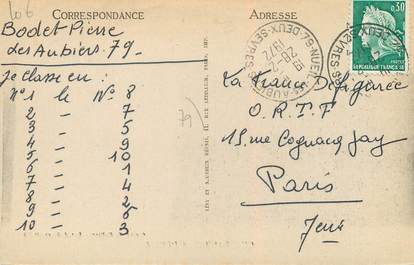 106
CORRESPONDANCE
ADRESSE
Bodet Pierre
des Aubiers 79-
je classe en :
N°1 le N° 8
2 - 7
3 - 5
4 - 9
5 - 10
6 - 1
7 - 4
8 - 2
9 - 6
10 - 3
79
0,50
REPUBLIQUE FRANCAISE
DEUX-SEVRES
28-2
1972
La France Défigurée
O. R. T. F
15 rue Cognacq Jay
Paris
Jeux